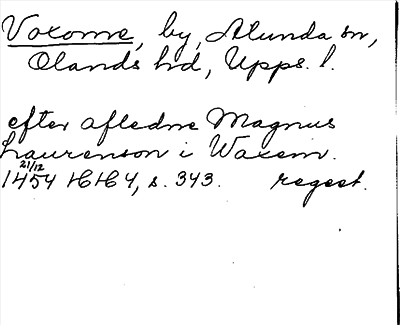 Voxome, by, Alunda sn,
Olands hd, Upps. l.
efter afledne Magnus
Laurenson i Waxem.
21/12
1454 HH 4, s. 343. regest.